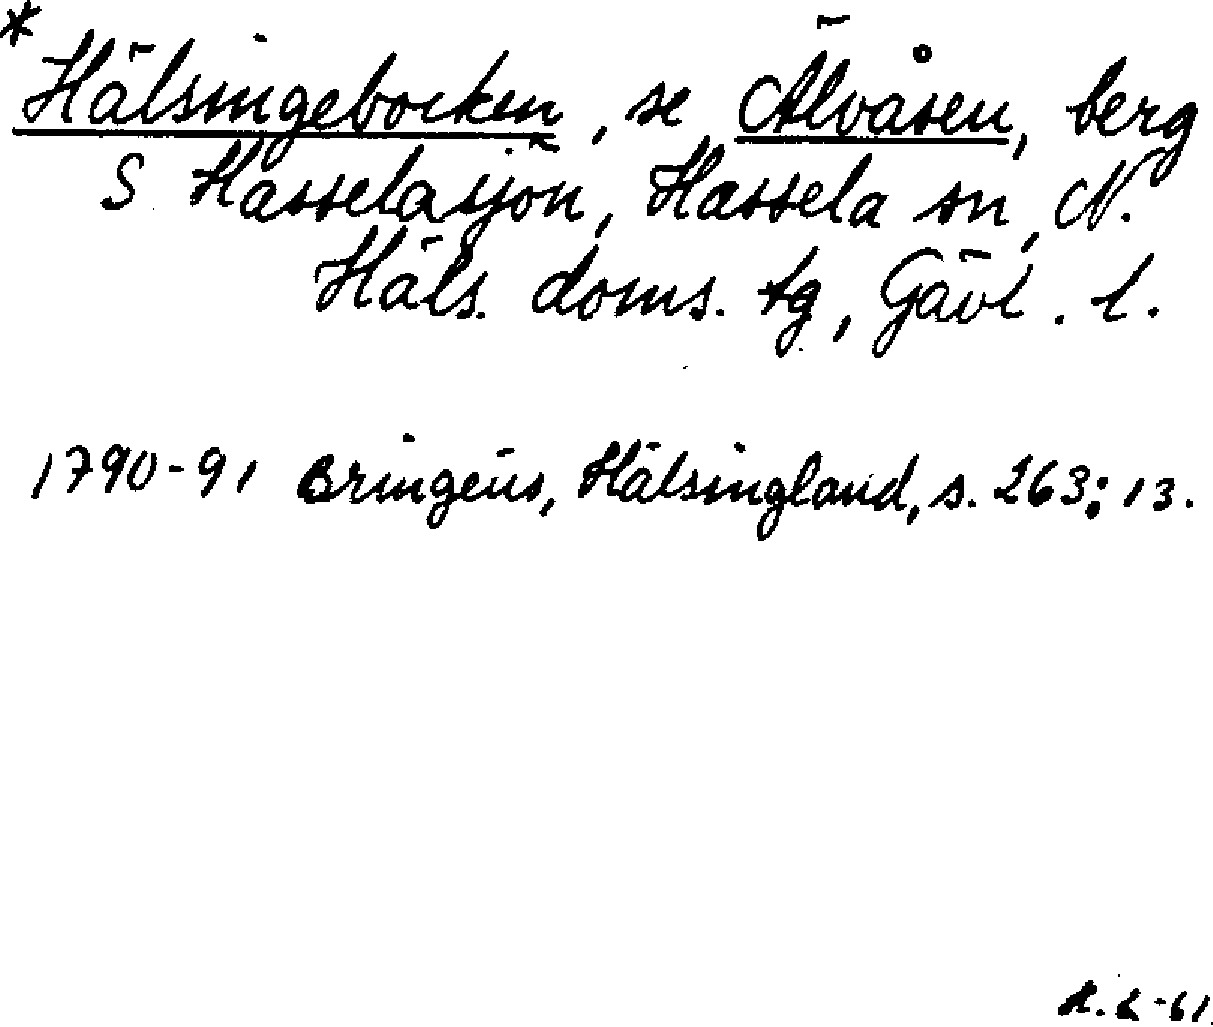 *Hälsingebocken, se Älvåsen, berg
S Hasselasjön, Hassela sn, N.
Häls. doms. tg, Gävl. l.
1790-91 Bringéus, Hälsingland, s. 263; 13.